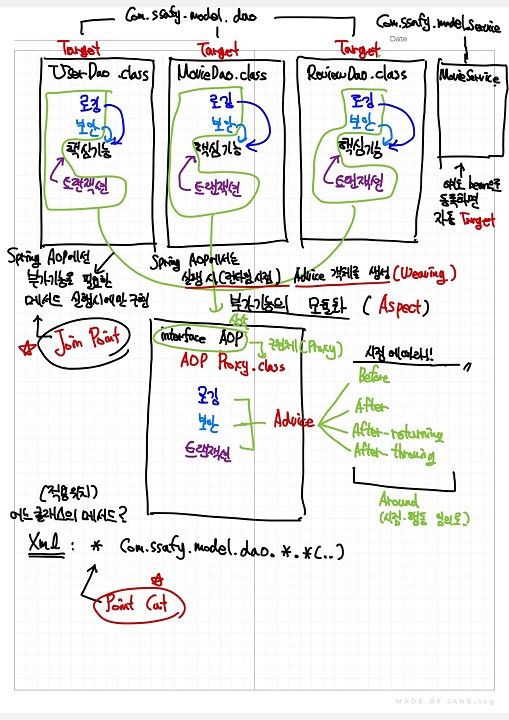 Com.ssafy.model.dao
Com.ssafy.model.Service
Date
Target
Target
Target
UserDao.class
MovieDao.class
ReviewDao.class
MovieService
로깅
보안
핵심기능
트랜잭션
로깅
보안
핵심기능
트랜잭션
로깅
보안
핵심기능
트랜잭션
얘도 bean으로
등록하면
자동 Target
Spring AOP에선
부가기능을 필요한
메서드 실행시에만 구현
Join Point
Spring AOP에서는
실행 시(런타임시점) Advice 객체를 생성 (Weaving)
부가기능의 모듈화 (Aspect)
상속
interface AOP
구현체(Proxy)
AOP Proxy.class
로깅
보안
트랜잭션
Advice
시점에따라!!
Before
After
After-returning
After-throwing
Around
(시점·행동 임의로)
(적용위치)
어느클래스의 메서드?
Xml : * Com.ssafy.model.dao.*.*(..)
Point Cut
MADE BY JANE_log